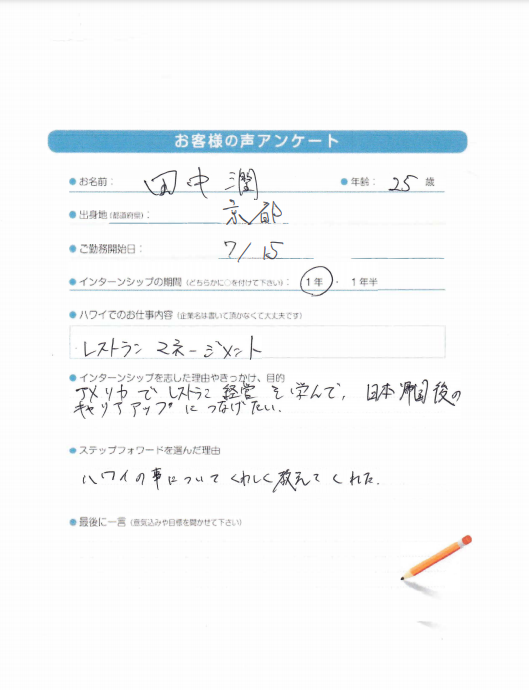 お客様の声アンケート
● お名前： 田中 潤 ● 年齢： 25 歳
● 出身地（都道府県）： 京都
● ご勤務開始日： 7/15
● インターンシップの期間（どちらかに○を付けて下さい）： 1年 ・ 1年半
● ハワイでのお仕事内容（企業名は書いて頂かなくて大丈夫です）
レストラン マネージメント
● インターンシップを志した理由やきっかけ、目的
アメリカでレストラン経営を学んで、日本帰国後の
キャリアアップにつなげたい.
● ステップフォワードを選んだ理由
ハワイの事についてくわしく教えてくれた.
● 最後に一言（意気込みや目標を聞かせて下さい）